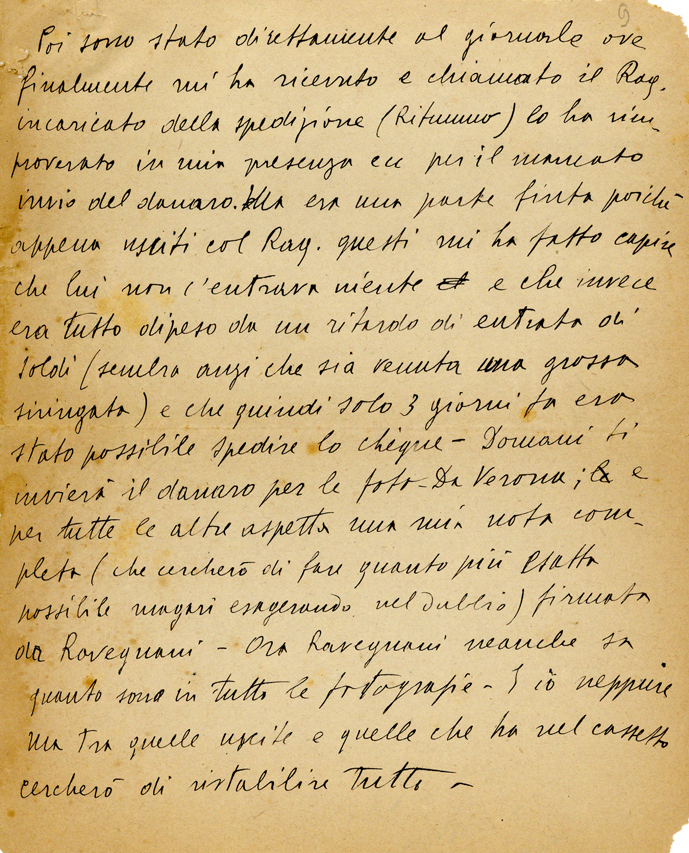 9
Poi sono stato direttamente al giornale ove
finalmente mi ha ricevuto e chiamato il Rag.
incaricato della spedizione (Ritummo) lo ha rim-
proverato in mia presenza ecc per il mancato
invio del danaro. Ma era una parte finta poichè
appena usciti col Rag. questi mi ha fatto capire
che lui non c'entrava niente e che invece
era tutto dipeso da un ritardo di entrata di
soldi (sembra anzi che sia venuta una grossa
siringata) e che quindi solo 3 giorni fa era
stato possibile spedire lo chèque - Domani ti
invierà il danaro per le foto - Da Verona; e
per tutte le altre aspetta una mia nota com-
pleta (che cercherò di fare quanto più esatta
possibile magari esagerando nel dubbio) firmata
da Ravegnani - Ora Ravegnani neanche sa
quanto sono in tutto le fotografie - E io neppure
Ma tra quelle uscite e quelle che ha nel cassetto
cercherò di ristabilire tutto -